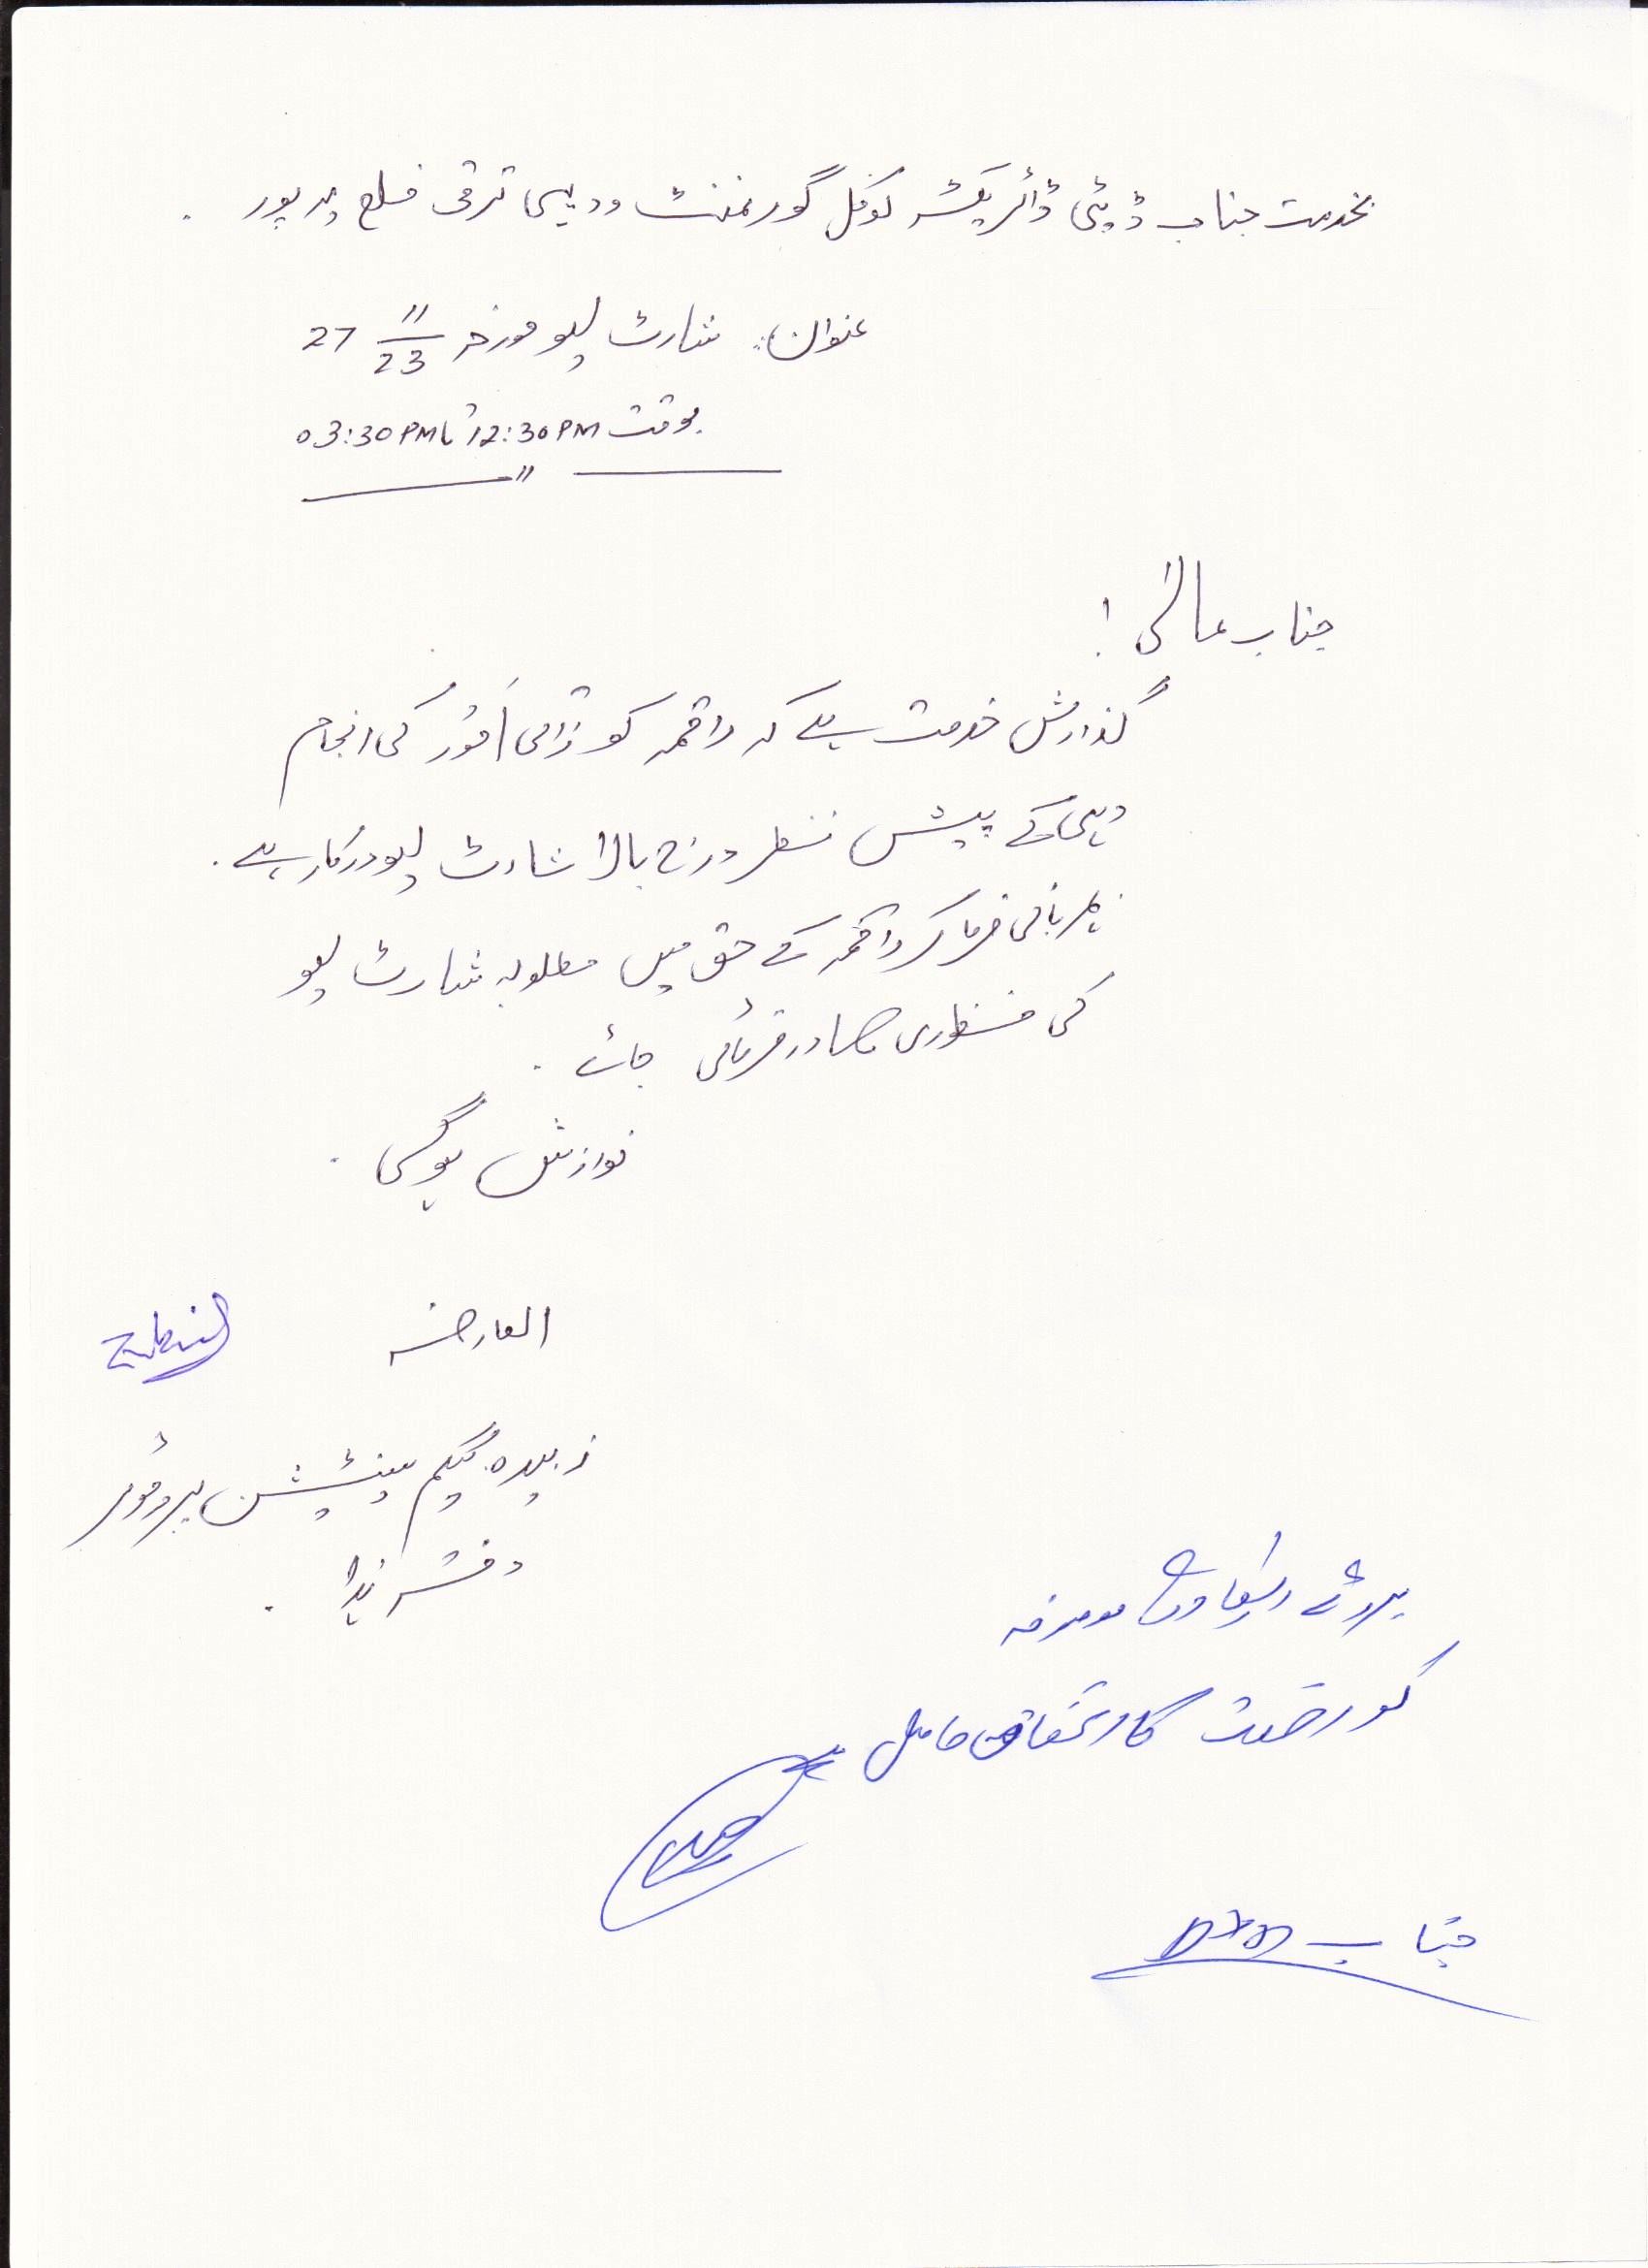 بخدمت جناب ڈپٹی ڈائریکٹر لوکل گورنمنٹ و دیہی ترقی ضلع
عنوان: شارٹ لیو مورخہ 27 11/23
بوقت 12:30PM تا 03:30PM
جناب عالی!
گذارش خدمت ہے کہ راقمہ کو ذاتی امور کی انجام
دہی کے پیش نظر درج بالا شارٹ لیو درکار ہے۔
مہربانی فرما کر راقمہ کے حق میں مطلوبہ شارٹ لیو
کی منظوری صادر فرمائی جائے۔
نوازش ہوگی۔
العارضہ
زبیدہ بیگم سینٹیشن پروموٹر
دفتر ہذا۔
بروئے ریکارڈ موصوفہ
کو رخصت کا استحقاق حاصل ہے
جناب